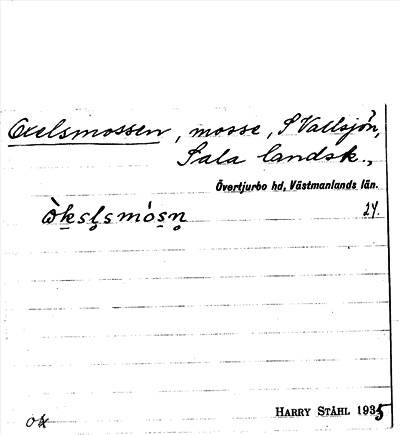 Oxelsmossen, mosse, S Vallsjön,
Sala landsk.,
Övertjurbo hd, Västmanlands län.
ὼk̲sl̥smós̲n̥ 24.
HARRY STÅHL 1935
ok